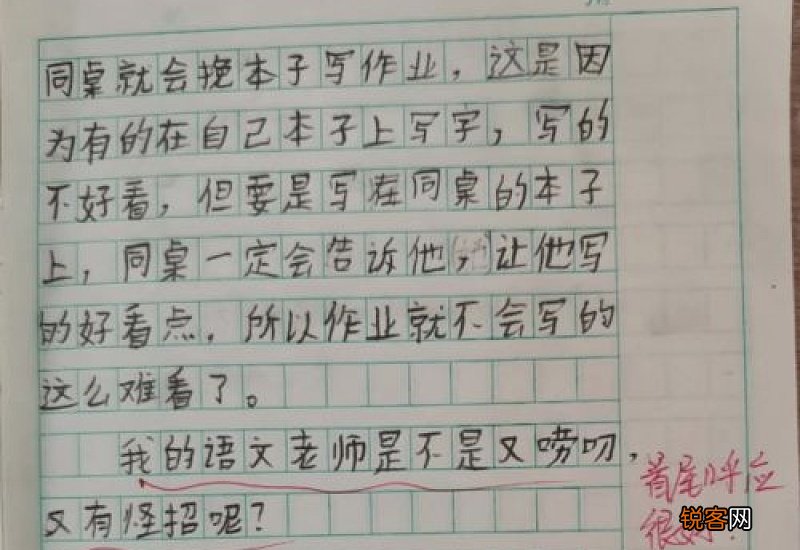 同桌就会挽本子写作业，这是因
为有的在自己本子上写字，写的
不好看，但要是写在同桌的本子
上，同桌一定会告诉他，让他写
的好看点。所以作业就不会写的
这么难看了。
我的语文老师是不是又唠叨，
又有怪招呢？
首尾呼应
很好！
锐客网